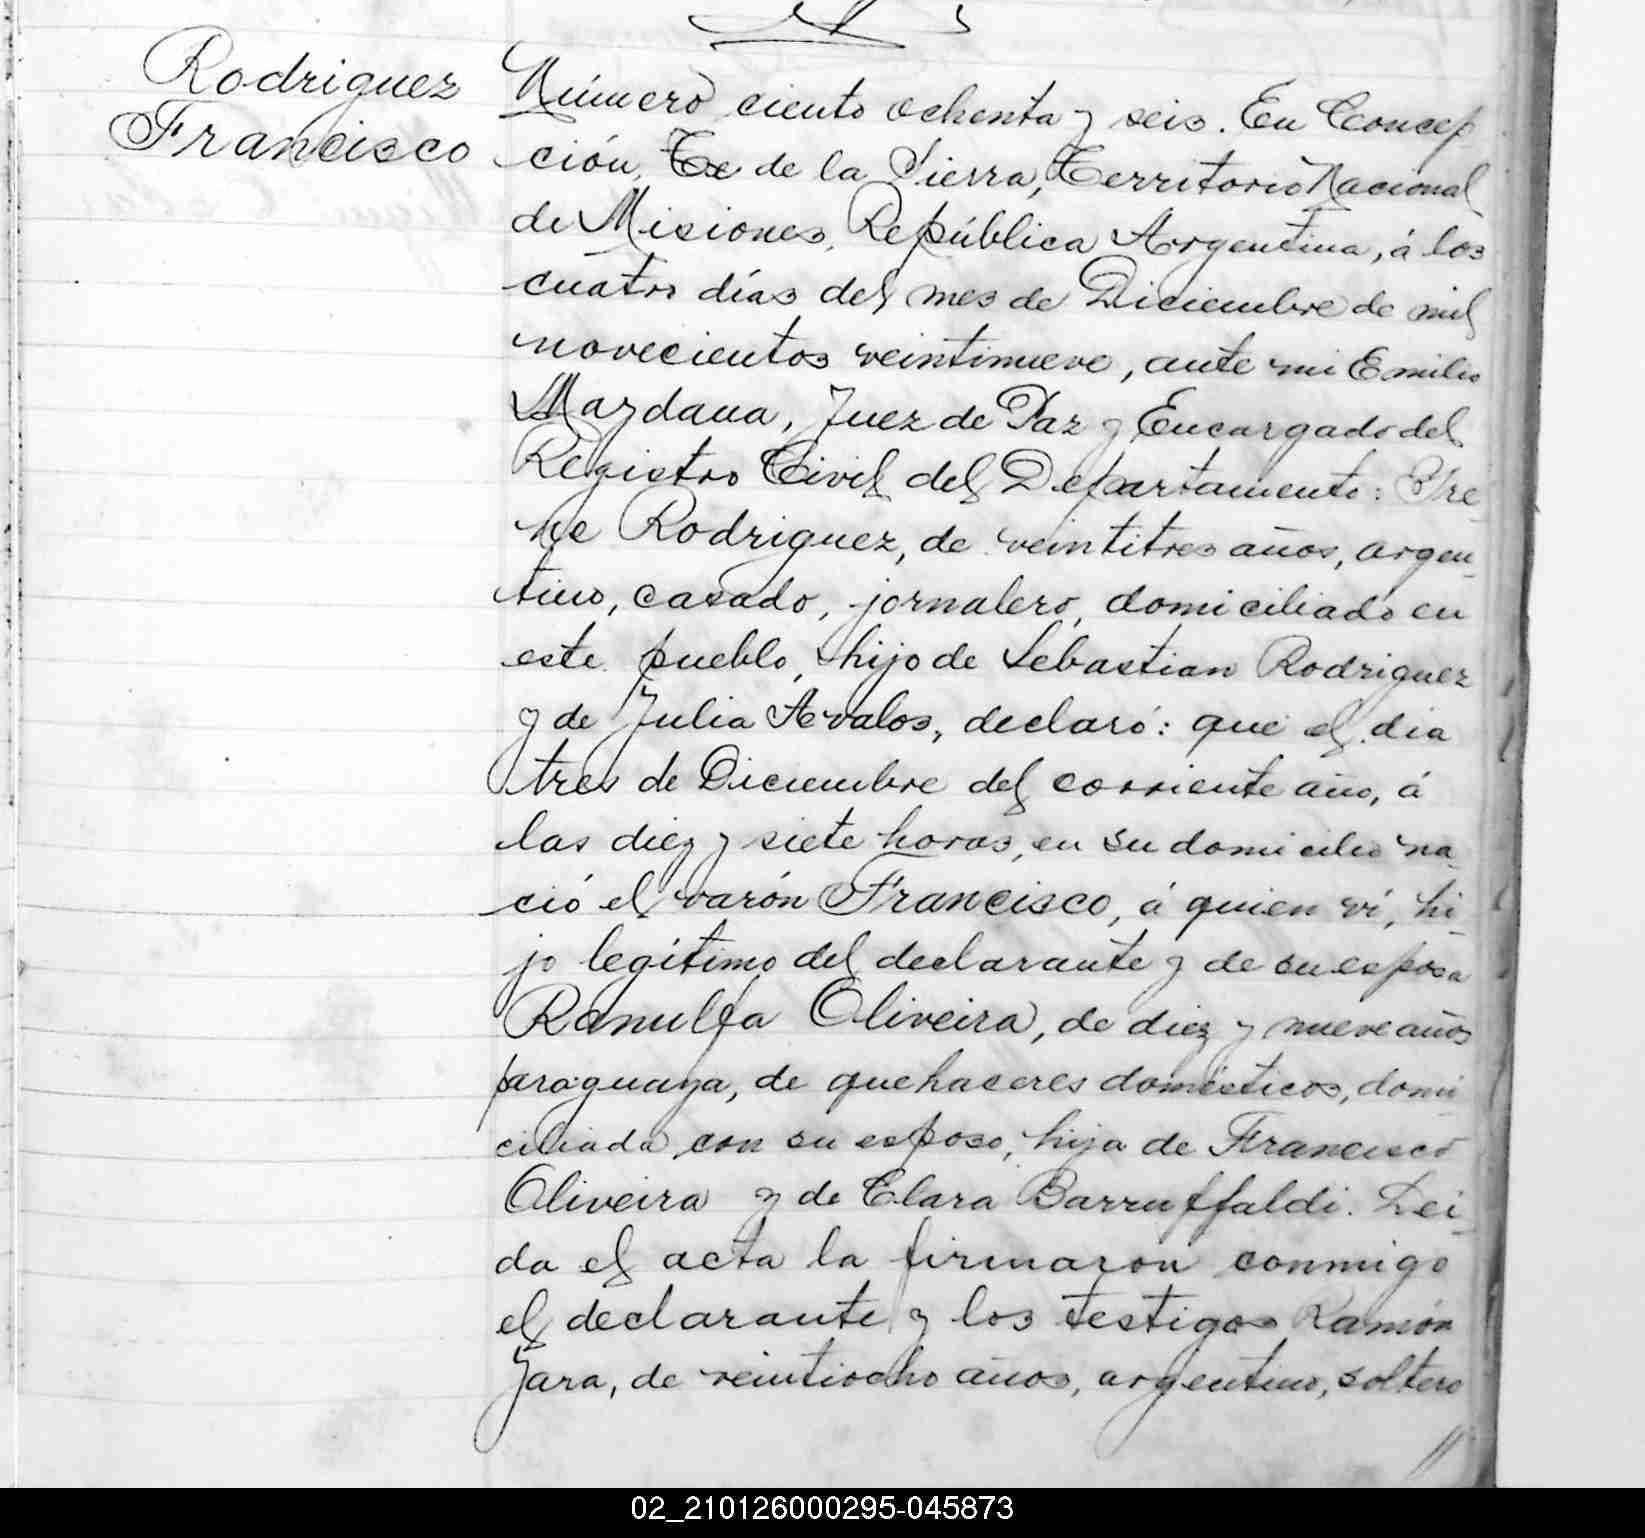 Rodriguez
Francisco
Número ciento ochenta y seis. En Concep
ción, de la Sierra, Territorio Nacional
de Misiones, República Argentina, á los
cuatro días del mes de Diciembre de mil
novecientos veintinueve, ante mi Emilio
Maydana, Juez de Paz y Encargado del
Registro Civil del Departamento: Ire-
ne Rodriguez, de veintitres años, argen-
tino, casado, jornalero, domiciliado en
este pueblo, hijo de Sebastian Rodriguez
y de Julia Avalos, declaró: que el dia
tres de Diciembre del corriente año, á
las diez y siete horas, en su domicilio na-
ció el varón Francisco, á quien ví, hi-
jo legítimo del declarante y de su esposa
Ranulfa Oliveira, de diez y nueve años
paraguaya, de quehaceres domésticos, domi-
ciliada con su esposo, hija de Francisco
Oliveira y de Clara Barruffaldi. Lei-
da el acta la firmaron conmigo
el declarante y los testigos Ramón
Jara, de veintiocho años, argentino, soltero
02_210126000295-045873